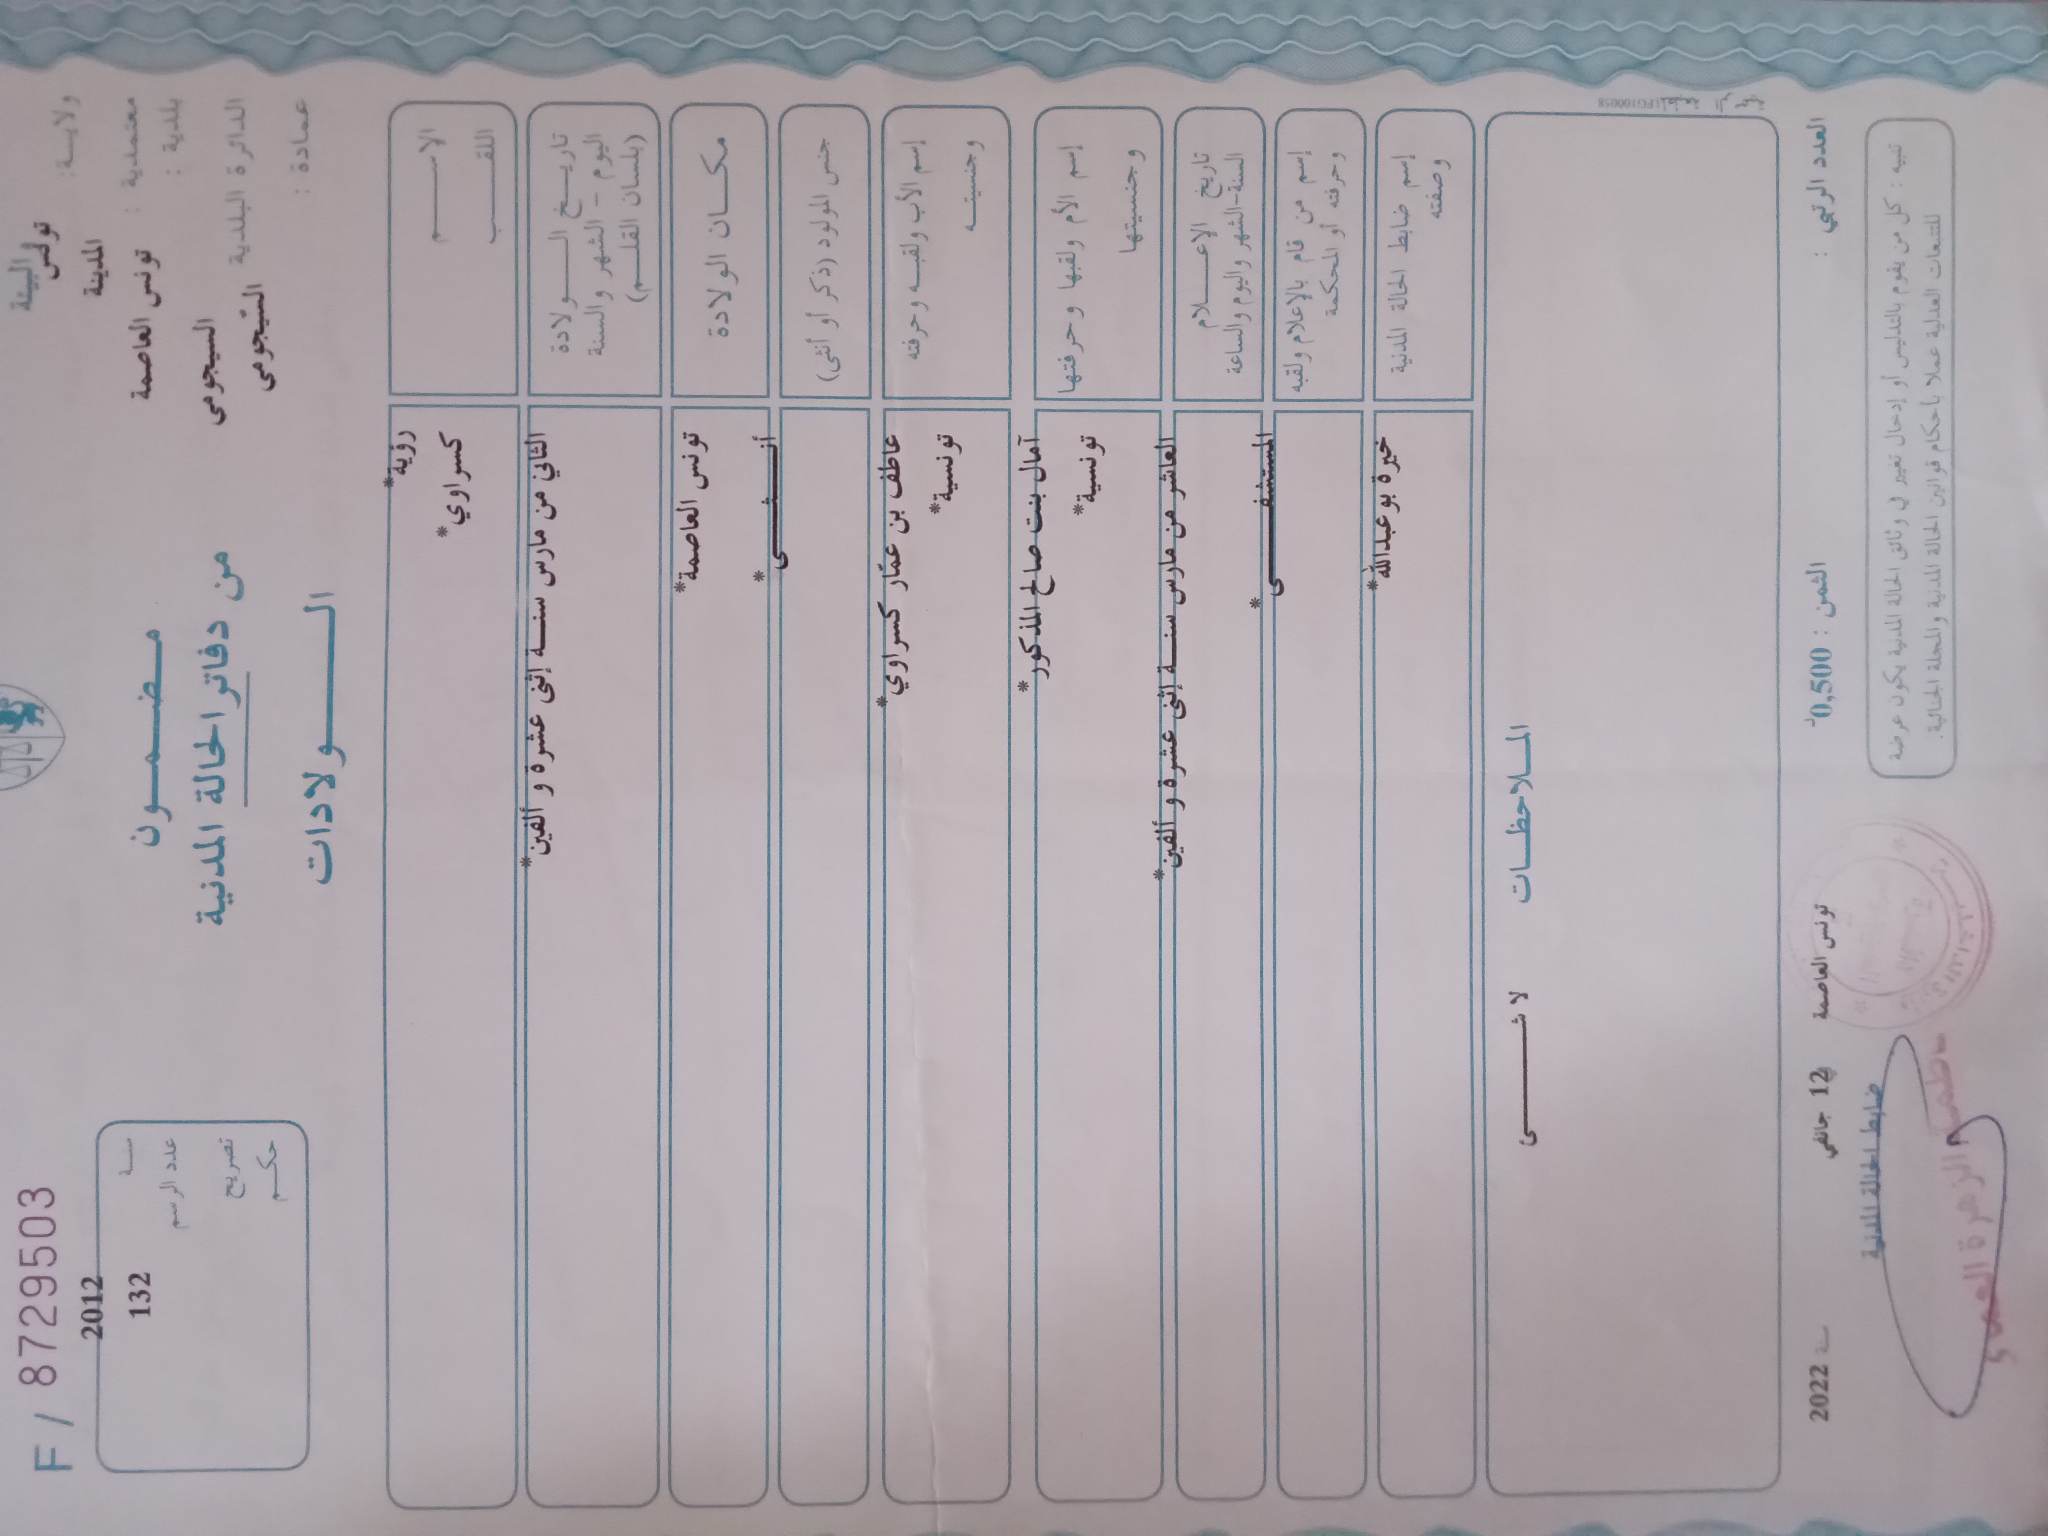 F / 8729503
ولايـــة :
تونس
معتمدية :
المدينة
بلدية :
تونس العاصمة
الدائرة البلدية
السيجومي
عمادة :
السيجومي
مـضـمـــون
من دفاتر الحالة المدنية
الـــــولادات
2012
سنـــة
132
عدد الرسم
تصريح
حكــم
الاســـــم
رؤية*
اللقـــــب
كسراوي*
تاريـــخ الـــولادة
اليوم – الشهر والسنة
(بلسان القلــم)
الثاني من مارس سنـــة إثنى عشرة و ألفين*
مكـــان الولادة
تونس العاصمة*
جنس المولود (ذكر أو أنثى)
أنـــثـــى*
إسم الأب ولقبـه وحرفته
عاطف بن عمّار كسراوي*
وجنسيتـــه
تونسية*
إسم الأم ولقبها وحرفتها
آمال بنت صالح المذكور*
وجنسيتها
تونسية*
تاريخ الإعـــلام
السنة-الشهر واليوم والساعة
العاشر من مارس سنـــة إثنى عشرة و ألفين*
إسم من قام بالإعلام ولقبه
وحرفته أو المحكمة
المستشفـــــى*
إسم ضابط الحالة المدنية
وصفته
خيرة بوعبدالله*
المـــلاحظـــات
لا شـــــئ
العدد الرتبي :
الثمن : 0,500 د
تونس العاصمة في 12 جانفي سنة 2022
ضابط الحالة المدنية
تنبيه : كل من يقوم بالتدليس أو إدخال تغيير في وثائق الحالة المدنية يكون عرضة
للتتبعات العدلية عملا بأحكام قوانين الحالة المدنية والمجلة الجنائية.